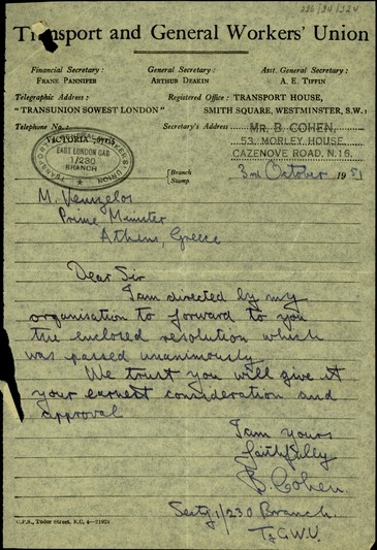 236/34/324
Transport and General Workers' Union
Financial Secretary: General Secretary: Asst. General Secretary:
Frank Pannifer Arthur Deakin A. E. Tiffin
Telegraphic Address: Registered Office: TRANSPORT HOUSE,
"TRANSUNION SOWEST LONDON" SMITH SQUARE, WESTMINSTER, S.W.1
Telephone No.: Secretary's Address
VICTORIA
EAST LONDON CAB
1/230
BRANCH
MR. B. COHEN,
53, MORLEY HOUSE,
CAZENOVE ROAD, N.16.
Branch
Stamp
3rd October 1951
M. Venizelos
Prime Minister
Athens, Greece
Dear Sir
I am directed by my
organisation to forward to you
the enclosed resolution which
was passed unanimously
We trust you will give it
your earnest consideration and
approval
I am yours
faithfully
B. Cohen.
Secty 1/230 Branch.
T&G.W.U.
C.P.S., Tudor Street, E.C. 4—